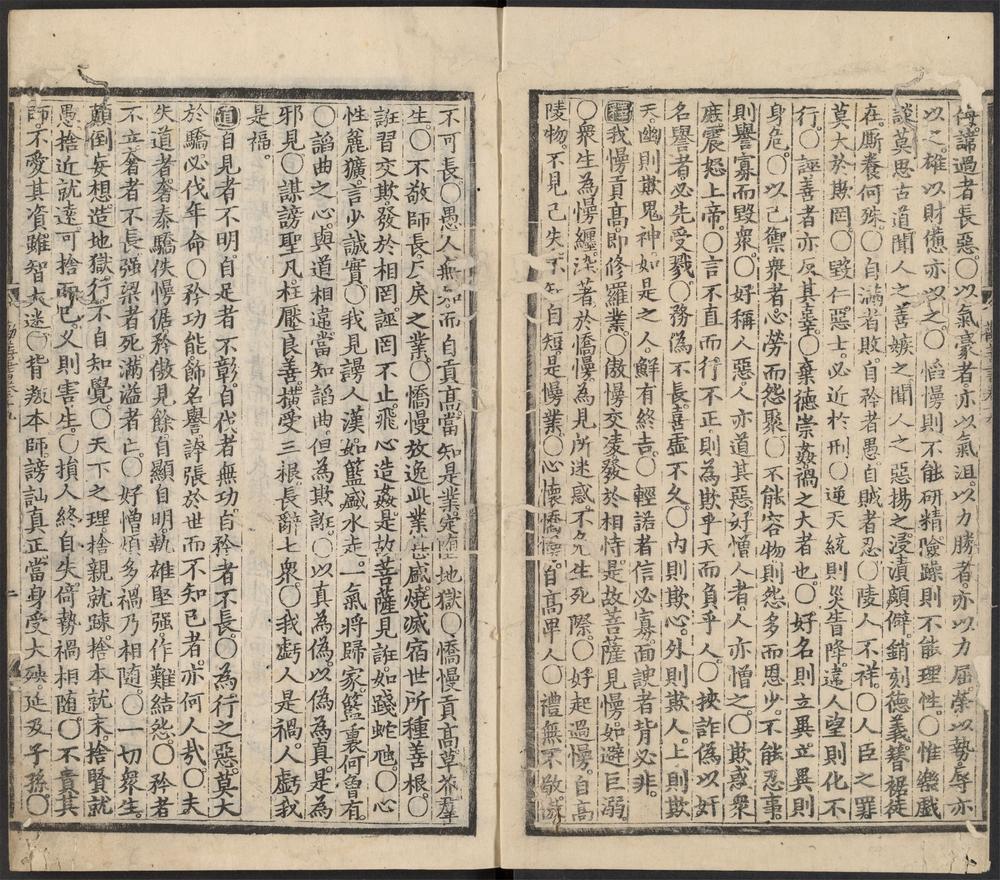 侮諱過者長惡○以氣豪者亦以氣沮以力勝者亦以力屈榮以勢辱亦
以之雄以財憊亦以之○慆慢則不能研精險躁則不能理性○惟樂戲
談莫思古道聞人之善嫉之聞人之惡揚之浸漬頗僻銷刻德義簪裾徒
在厮養何殊○自滿者敗自矜者愚自賊者忍○陵人不祥○人臣之罪
莫大於欺罔○毀仁惡士必近於刑○逆天統則災眚降違人望則化不
行○誣善者亦反其辜○棄德崇姦禍之大者也○好名則立異立異則
身危○以己禦衆者心勞而怨聚○不能容物則怨多而恩少不能忍事
則譽寡而毀衆○好稱人惡人亦道其惡好憎人者人亦憎之○欺惑衆
庶震怒上帝○言不直而行不正則為欺乎天而負乎人○挾詐僞以奸
名譽者必先受戮○務偽不長喜虛不久○內則欺心外則欺人上則欺
天幽則欺鬼神如是之人鮮有終吉○輕諾者信必寡面諛者背必非
釋我慢貢高即修羅業○傲慢交凌發於相恃是故菩薩見慢如避巨溺
○衆生為慢纏染著於憍慢為見所迷惑不免生死際○好起過慢自高
陵物不見己失不自知短是慢○心懷憍慢自高卑人○禮無不敬
不可長○愚人無知而自貢高當知是業定墮地獄○憍慢貢高草芥羣
生○不敬師長反戾之業○憍慢放逸此業世盛燒滅宿世所種善根○
誑習交欺發於相罔誣罔不止飛心造姦是故菩薩見誑如踐蛇虺○心
性麄獷言少誠實○我見謾人漢如籃盛水走一氣將歸家籃裏何曾有
○謟曲之心與道相違當知謟曲但為欺誑○以真為偽以偽為真是為
邪見○謀謗聖凡枉壓良善橫受三根長辭七衆○我虧人是禍人虧我
是福
道自見者不明自足者不彰自伐者無功自矜者不長○為行之惡莫大
於驕必伐年命○矜功能飾名譽誇張於世而不知已者亦何人㢤○夫
失道者奢泰驕佚慢倨矜傲見餘自顯自明執雄堅强作難結怨○矜者
不立奢者不長强梁者死滿溢者亡○好憎煩多禍乃相随○一切衆生
顛倒妄想造地獄行不自知覺○天下之理捨親就踈捨本就末捨賢就
愚捨近就遠可捨而已乂則害生○損人終自失倚勢禍相随○不貴其
師不愛其資雖智大迷○背叛本師謗訕真正當身受大殃延及子孫○